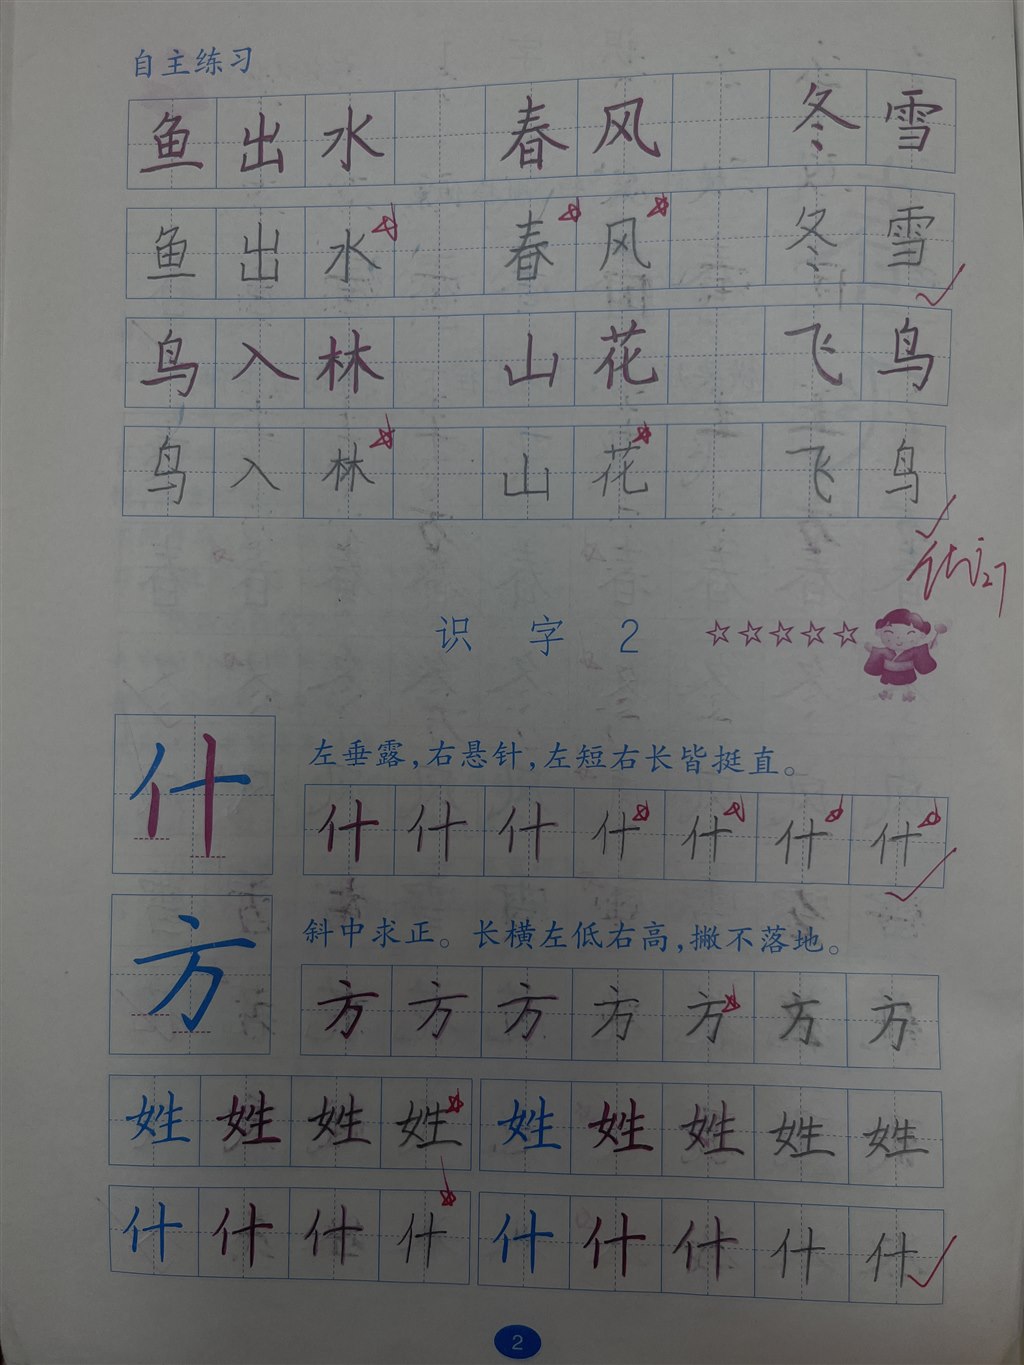 自主练习
鱼出水 春风 冬雪
鱼出水 春风 冬雪
鸟入林 山花 飞鸟
鸟入林 山花 飞鸟
识字2 ☆☆☆☆☆
什
左垂露,右悬针,左短右长皆挺直。
什什什什什什什
方
斜中求正。长横左低右高,撇不落地。
方方方方方方方
姓姓姓姓 姓姓姓姓姓
什什什什 什什什什什
2